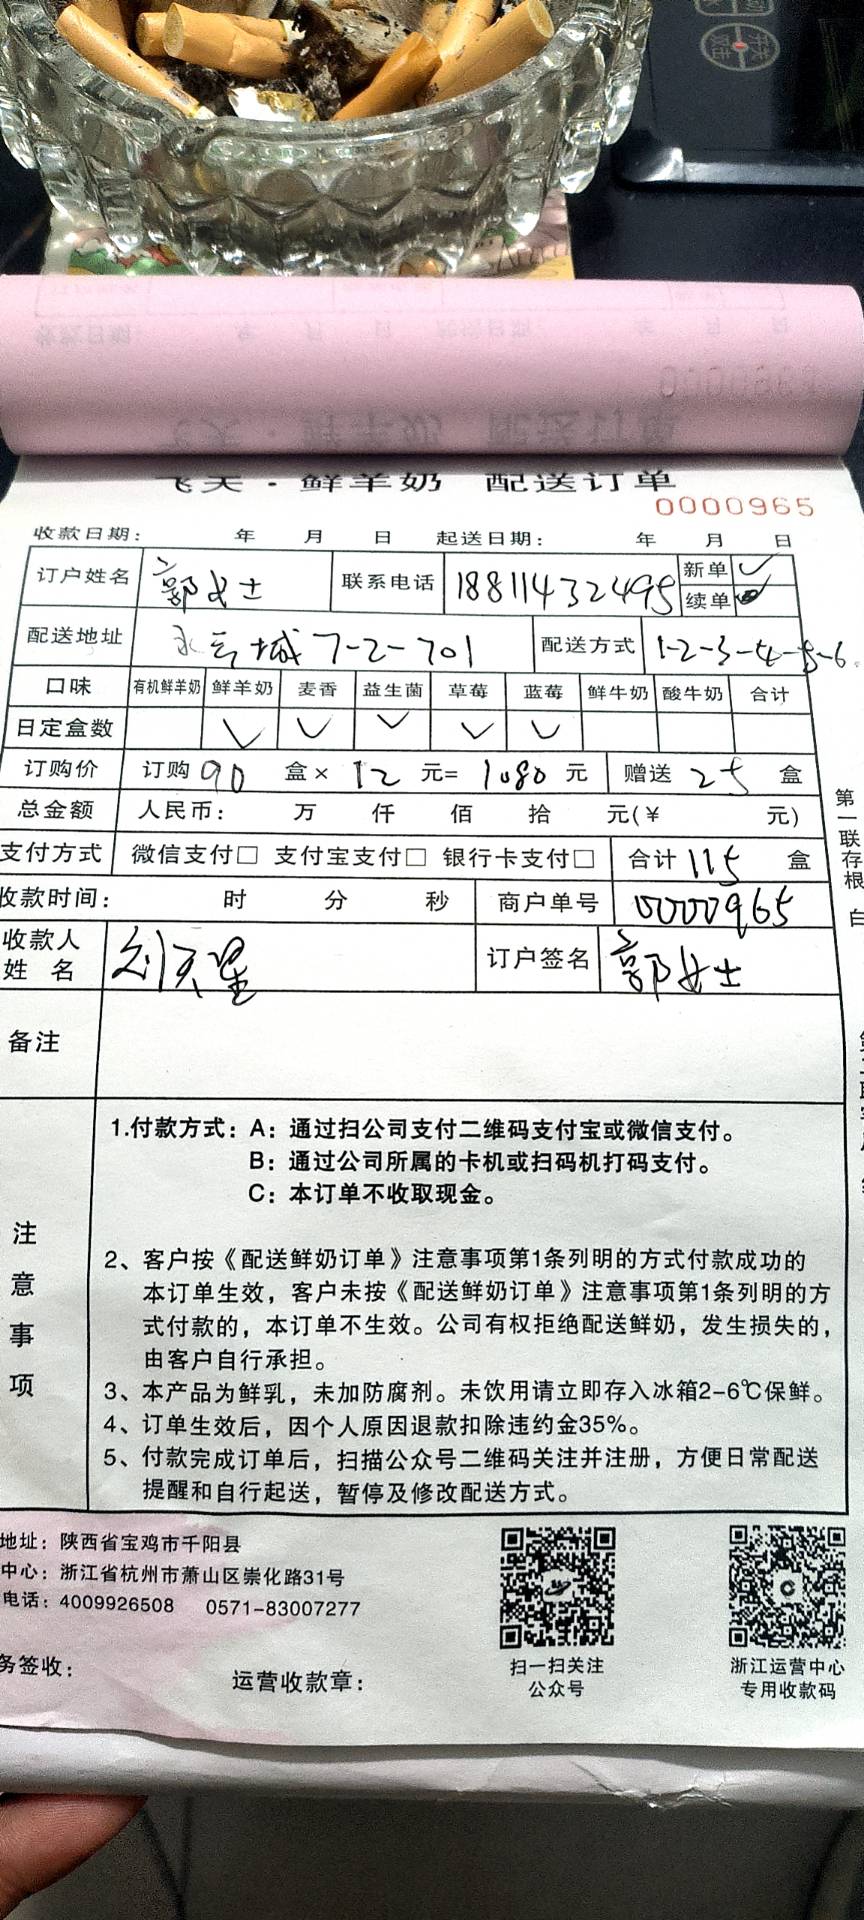 飞天·鲜羊奶 配送订单
0000965
收款日期： 年 月 日 起送日期： 年 月 日
订户姓名 郭女士 联系电话 18811432495 新单 ✓
续单
配送地址 城7-2-701 配送方式 1-2-3-4-5-6
口味 有机鲜羊奶 鲜羊奶 麦香 益生菌 草莓 蓝莓 鲜牛奶 酸牛奶 合计
日定盒数 ✓ ✓ ✓ ✓ ✓
订购价 订购 90 盒× 12 元= 1080 元 赠送 25 盒
总金额 人民币： 万 仟 佰 拾 元(￥ 元)
支付方式 微信支付□ 支付宝支付□ 银行卡支付□ 合计 115 盒
收款时间： 时 分 秒 商户单号 0000965
收款人姓名 刘天星 订户签名 郭女士
备注
注意事项
1.付款方式：A：通过扫公司支付二维码支付宝或微信支付。
B：通过公司所属的卡机或扫码机打码支付。
C：本订单不收取现金。
2、客户按《配送鲜奶订单》注意事项第1条列明的方式付款成功的
本订单生效，客户未按《配送鲜奶订单》注意事项第1条列明的方
式付款的，本订单不生效。公司有权拒绝配送鲜奶，发生损失的，
由客户自行承担。
3、本产品为鲜乳，未加防腐剂。未饮用请立即存入冰箱2-6℃保鲜。
4、订单生效后，因个人原因退款扣除违约金35%。
5、付款完成订单后，扫描公众号二维码关注并注册，方便日常配送
提醒和自行起送，暂停及修改配送方式。
第一联存根 白
地址：陕西省宝鸡市千阳县
中心：浙江省杭州市萧山区崇化路31号
电话：4009926508 0571-83007277
务签收： 运营收款章：
扫一扫关注
公众号
浙江运营中心
专用收款码